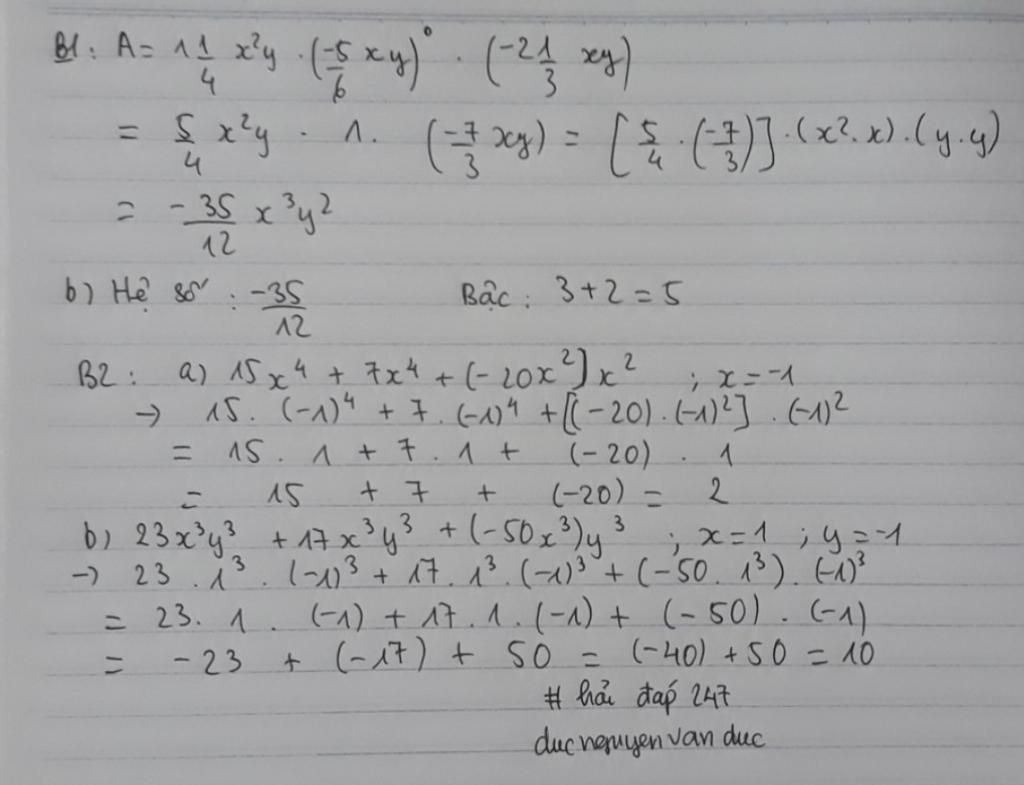 B1: A = 1 1/4 x²y · (-5/6 xy)⁰ · (-2 1/3 xy)
= 5/4 x²y · 1 · (-7/3 xy) = [5/4 · (-7/3)] · (x² · x) · (y · y)
= -35/12 x³y²
b) Hệ số : -35/12 Bậc : 3 + 2 = 5
B2 : a) 15x⁴ + 7x⁴ + (-20x²)x² ; x = -1
→ 15 · (-1)⁴ + 7 · (-1)⁴ + [(-20) · (-1)²] · (-1)²
= 15 · 1 + 7 · 1 + (-20) · 1
= 15 + 7 + (-20) = 2
b) 23x³y³ + 17x³y³ + (-50x³)y³ ; x = 1 ; y = -1
→ 23 · 1³ · (-1)³ + 17 · 1³ · (-1)³ + (-50 · 1³) · (-1)³
= 23 · 1 · (-1) + 17 · 1 · (-1) + (-50) · (-1)
= -23 + (-17) + 50 = (-40) + 50 = 10
# hỏi đáp 247
ducnguyenvanduc